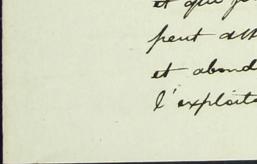 et que
peut att
et abond
l'exploit